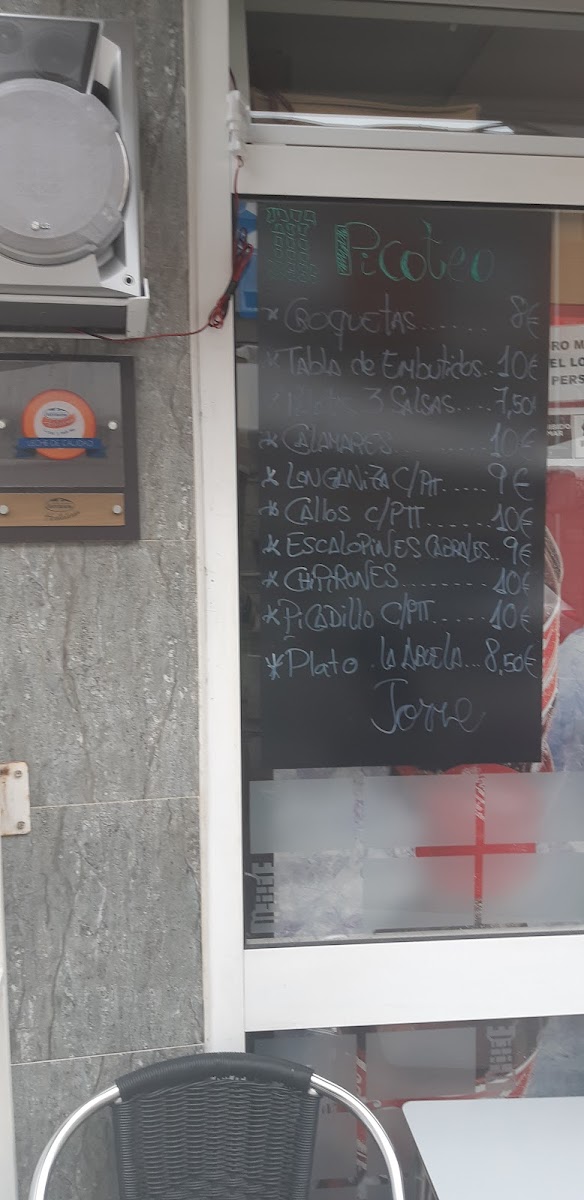 Picoteo
* CROQUETAS...... 8€
* Tabla de Embutidos.. 10€
3 SALSAS.... 7,50
* CALAMARES........ 10€
* LONGANIZA C/PTT..... 9€
* CAllOS C/PTT....... 10€
* ESCALOPINES CABRALES.. 9€
* CHIPIRONES......... 10€
* PiCADillO C/PTT...... 10€
* Plato . lA AbUELA... 8,50€
Torre
LG
LECHE DE CALIDAD
EL LO
PERS